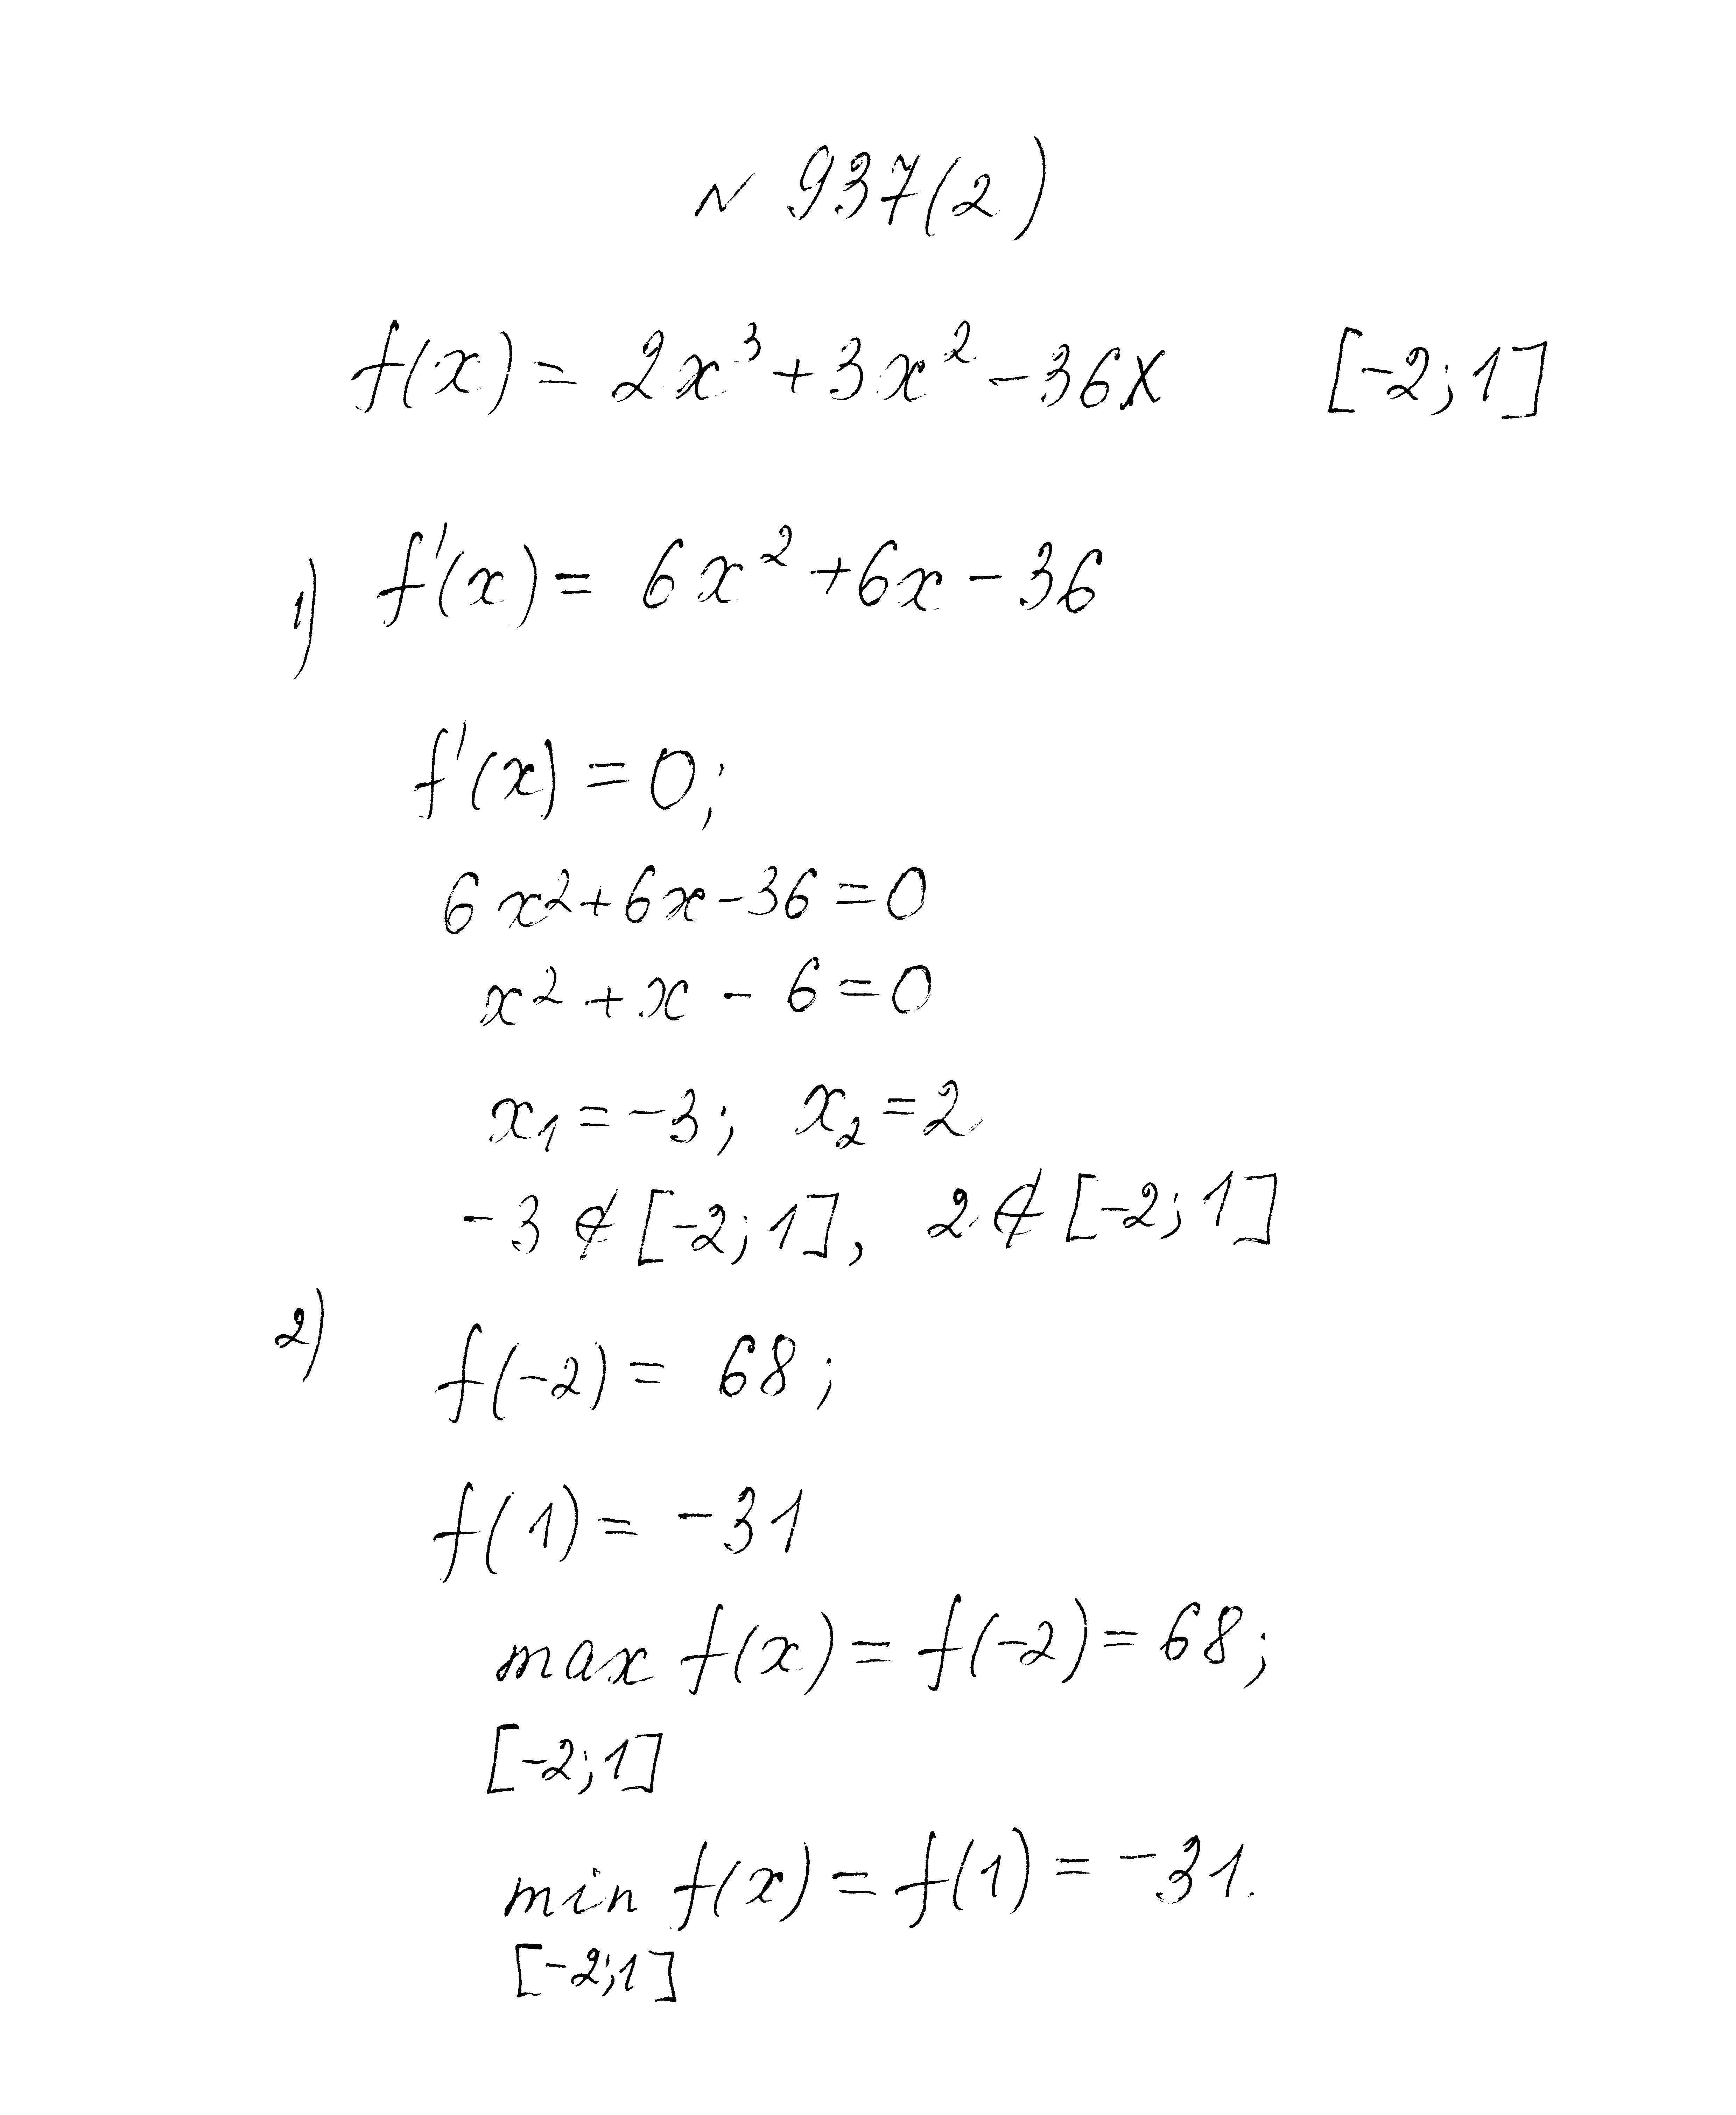 № 937(2)
f(x) = 2x³ + 3x² - 36x [-2; 1]
1) f'(x) = 6x² + 6x - 36
f'(x) = 0;
6x² + 6x - 36 = 0
x² + x - 6 = 0
x₁ = -3; x₂ = 2
-3 ∉ [-2; 1], 2 ∉ [-2; 1]
2) f(-2) = 68;
f(1) = -31
max f(x) = f(-2) = 68;
[-2; 1]
min f(x) = f(1) = -31.
[-2; 1]